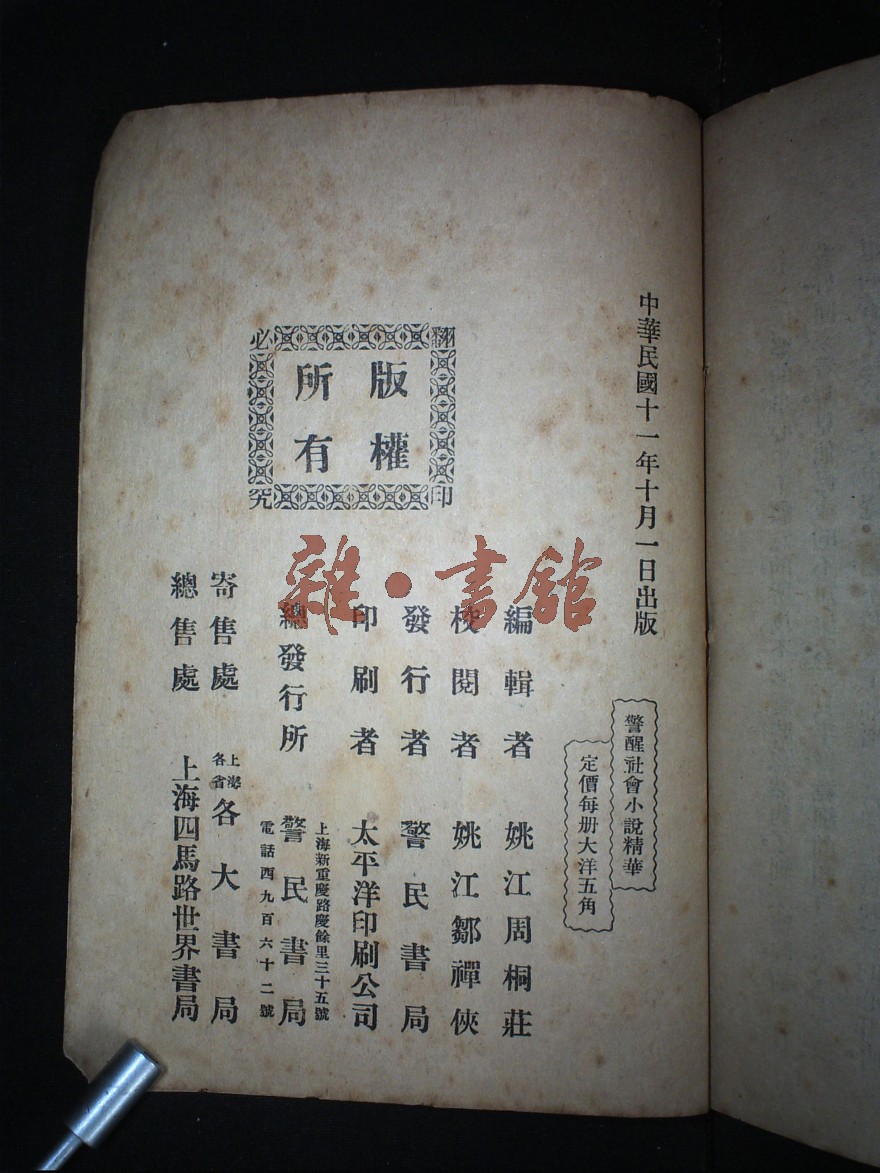 中華民國十一年十月一日出版
警醒社會小說精華
定價每册大洋五角
編輯者 姚江周桐莊
校閱者 姚江鄒禪俠
發行者 警民書局
印刷者 太平洋印刷公司
上海新重慶路慶餘里三十五號
總發行所 警民書局
電話西九百六十二號
寄售處 上海各省各大書局
總售處 上海四馬路世界書局
版權所有
翻印必究
雜·書館